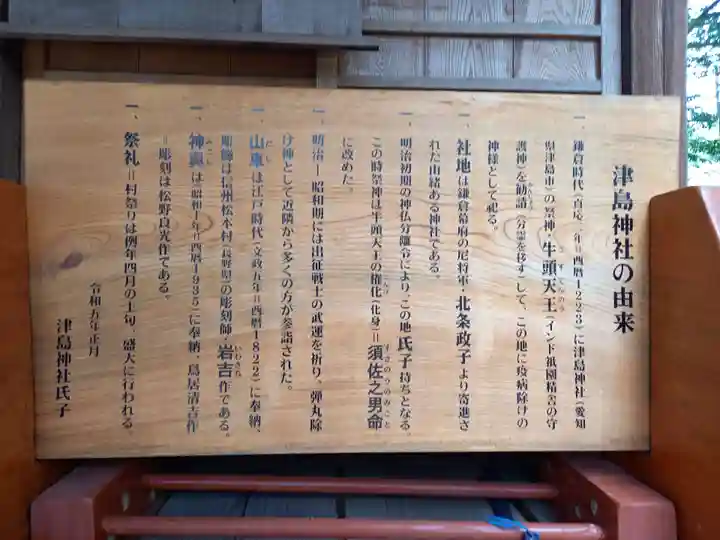 津島神社の由来
一、鎌倉時代（貞応二年＝西暦1223）に津島神社（愛知
県津島市）の祭神・牛頭天王（インド祇園精舎の守
ごずてんのう
護神）を勧請（分霊を移す）して、この地に疫病除けの
かんじょう
神様として祀る。
一、社地は鎌倉幕府の尼将軍・北条政子より寄進さ
れた由緒ある神社である。
一、明治初期の神仏分離令により、この地氏子持ちとなる。
この時祭神は牛頭天王の権化（化身）＝須佐之男命
ごんげ
すさのおのみこと
に改めた。
一、明治－昭和期には出征戦士の武運を祈り、弾丸除
け神として近隣から多くの方が参詣された。
一、山車は江戸時代（文政五年＝西暦1822）に奉納、
だし
彫飾は信州松本村（長野県）の彫刻師・岩吉作である。
いわきち
一、神輿は（昭和十年＝西暦1935）に奉納、鳥居清吉作
みこし
＝彫刻は松野良光作である。
一、祭礼＝村祭りは例年四月の上旬、盛大に行われる。
令和五年正月
津島神社氏子